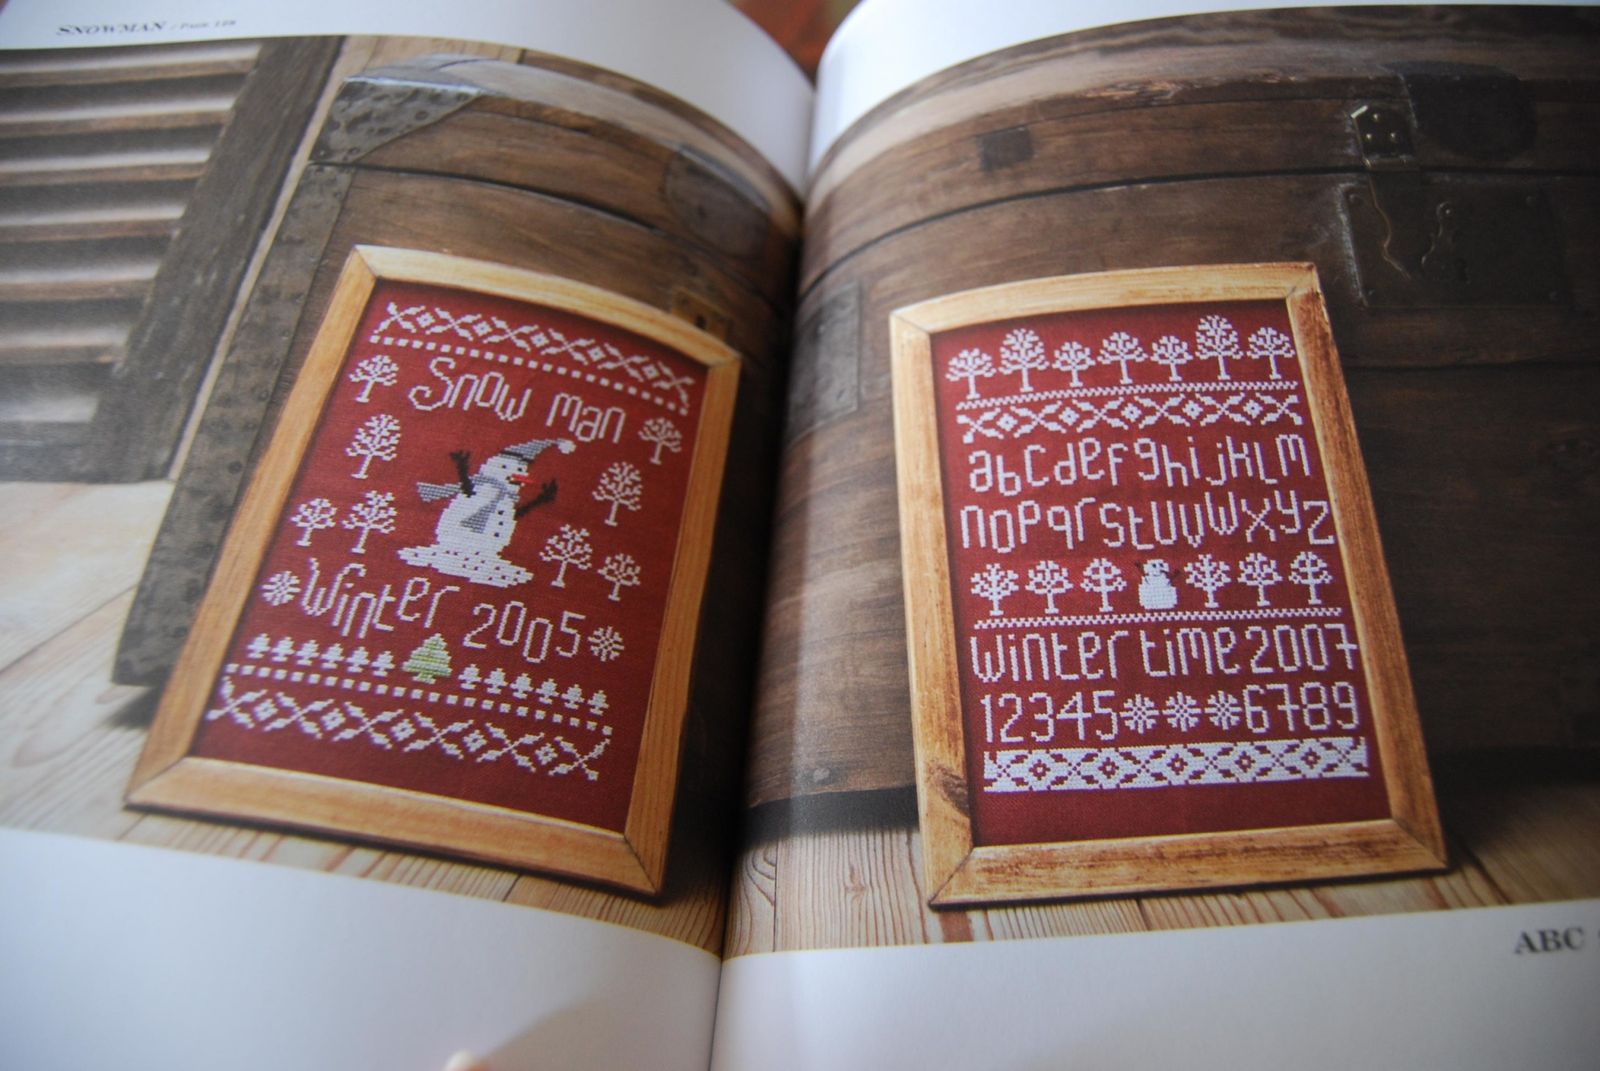 SNOWMAN / PAGE 128
Snow man
Winter 2005
abcdefghijklm
nopqrstuvwxyz
winter time 2007
12345 6789
ABC